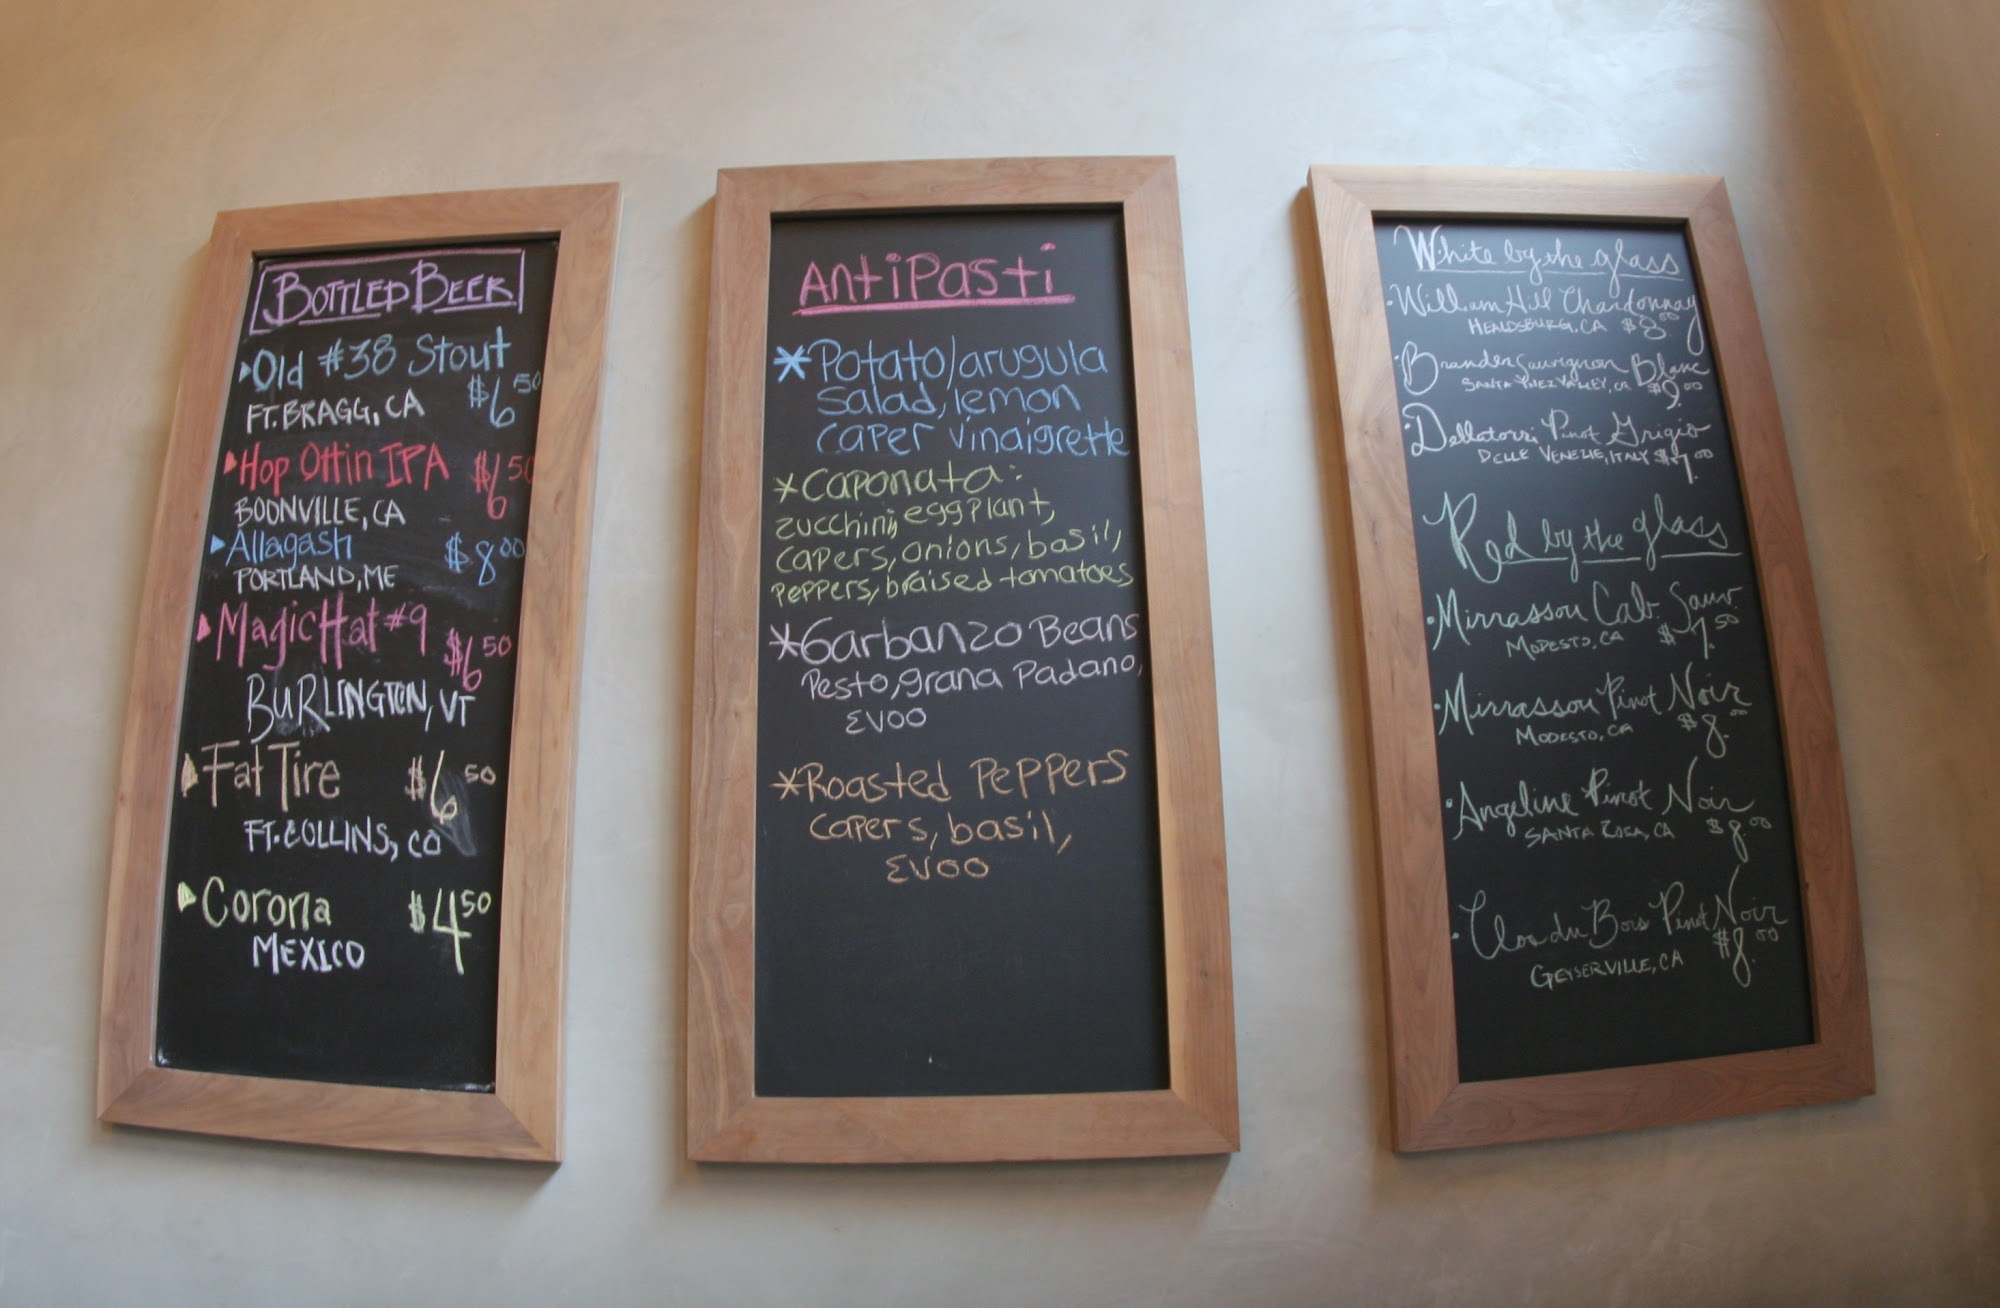 BOTTLED BEER
Old #38 Stout
$6.50
FT. BRAGG, CA
Hop Ottin IPA $6.50
BOONVILLE, CA
Allagash $8.00
PORTLAND, ME
Magic Hat #9
$6.50
BURLINGTON, VT
Fat Tire $6.50
FT. COLLINS, CO
Corona $4.50
MEXICO
AntiPasti
*Potato/arugula
salad, lemon
caper vinaigrette
*Caponata:
zucchini, eggplant,
capers, onions, basil,
peppers, braised tomatoes
*Garbanzo Beans
Pesto, grana Padano,
EVOO
*Roasted Peppers
capers, basil,
EVOO
White by the glass
·William Hill Chardonnay
HEALDSBURG, CA $8.00
·Brander Sauvignon Blanc
SANTA YNEZ VALLEY, CA $9.00
·Dellatorri Pinot Grigio
DELLE VENEZIE, ITALY $7.00
Red by the glass
·Mirrassou Cab. Sauv.
MODESTO, CA $7.50
·Mirrassou Pinot Noir
MODESTO, CA $8.00
·Angeline Pinot Noir
SANTA ROSA, CA $8.00
·Clos du Bois Pinot Noir
GEYSERVILLE, CA $8.00